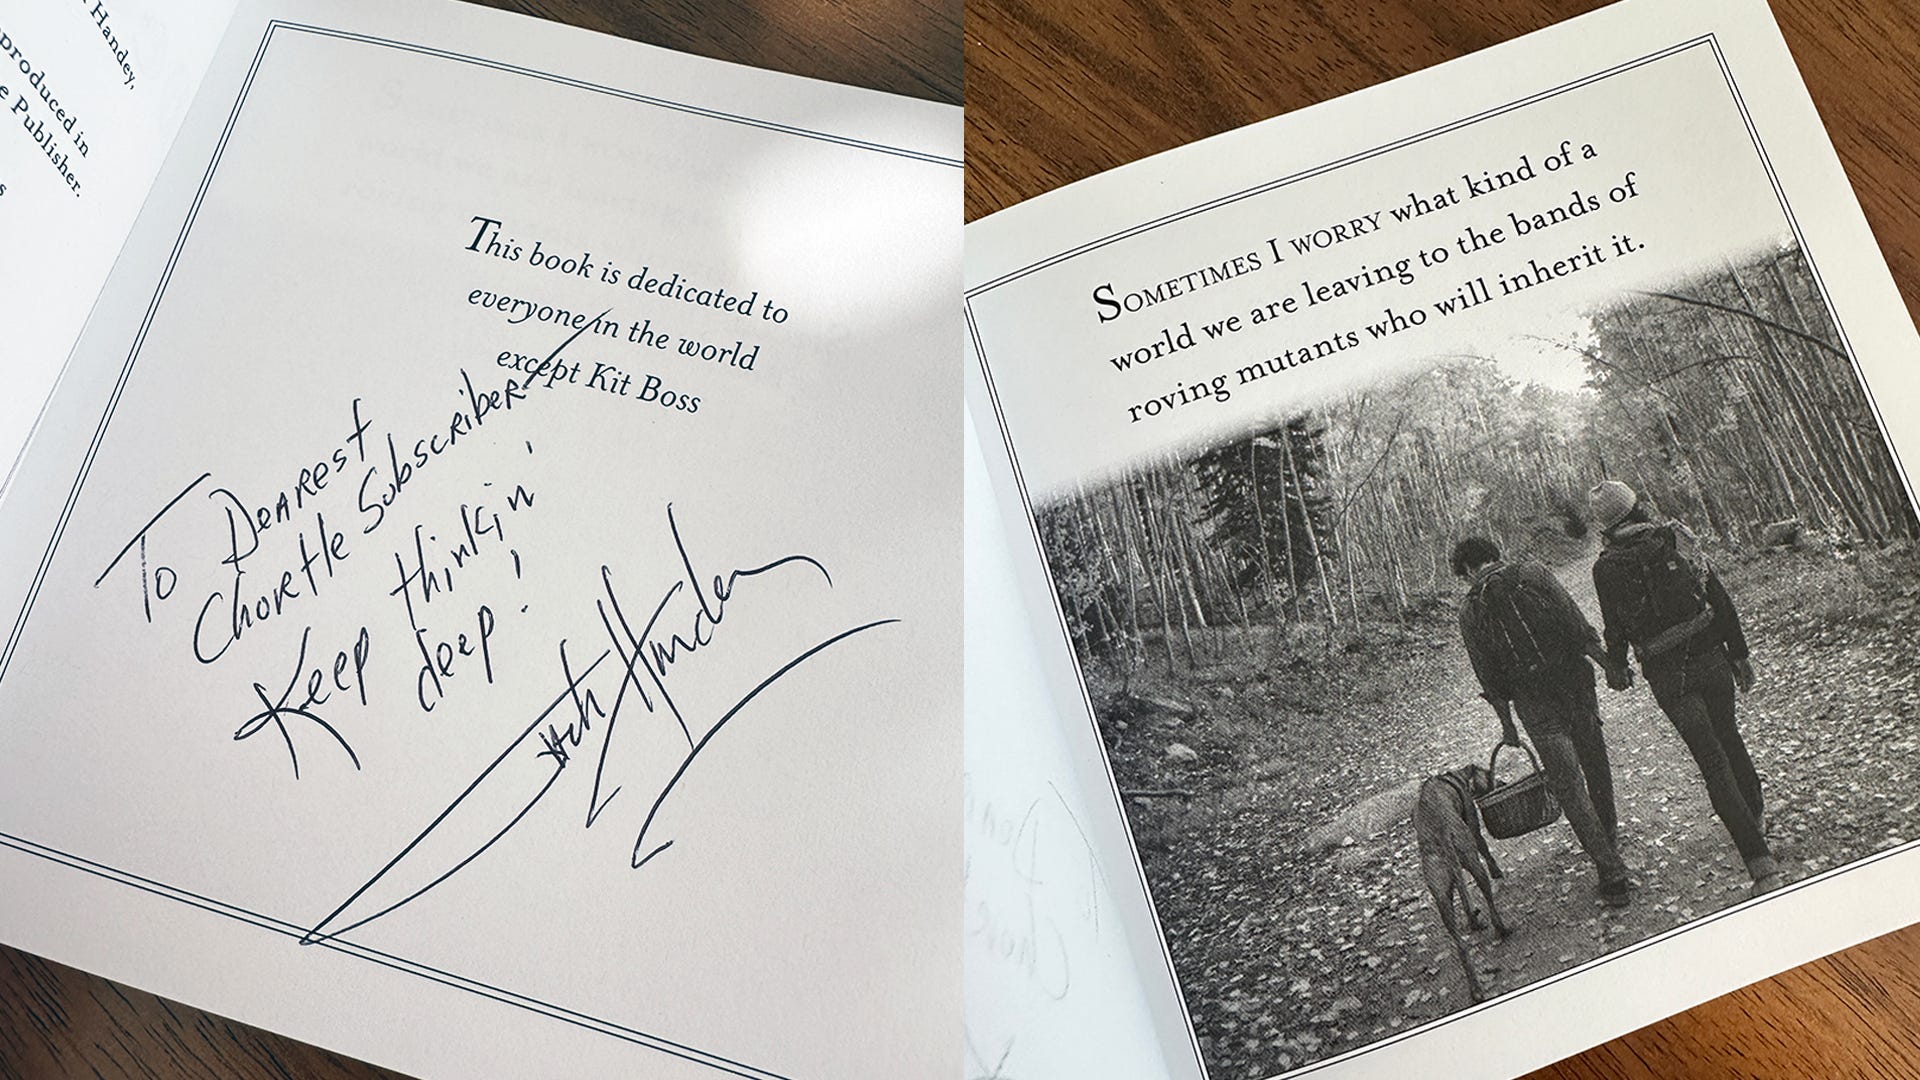 Handey,
produced in
e Publisher.
s
This book is dedicated to
everyone in the world
except Kit Boss
To Dearest
Chortle Subscriber,
Keep thinkin'
deep!
Jack Handey
Sometimes I worry what kind of a
world we are leaving to the bands of
roving mutants who will inherit it.